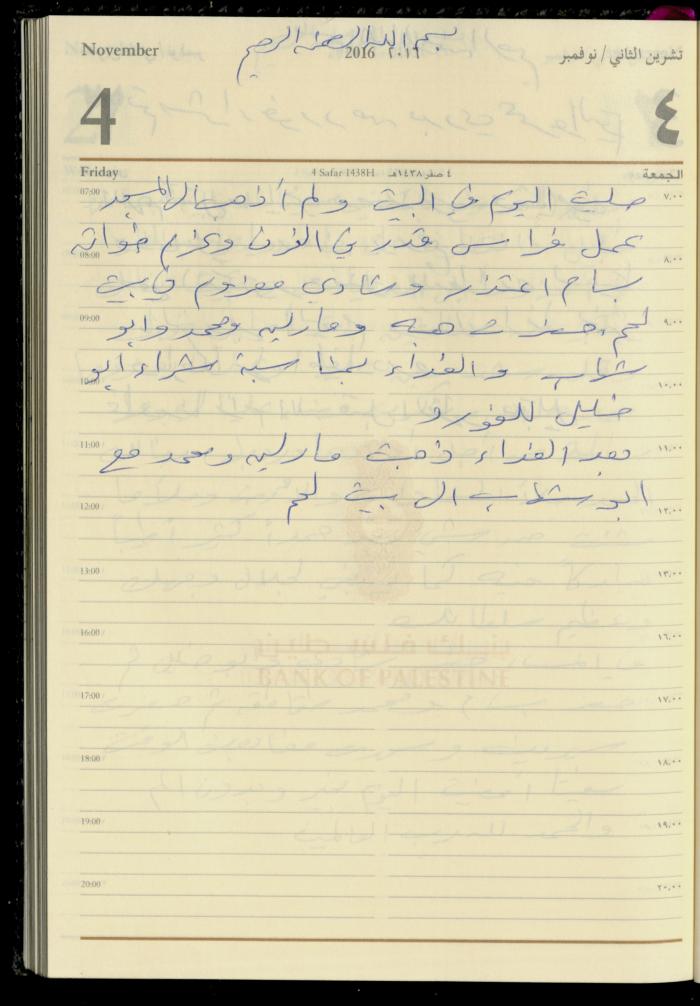 بسم الله الرحمن الرحيم
November 2016 ٢٠١٦ تشرين الثاني / نوفمبر
4 ٤
Friday 4 Safar 1438H ٤ صفر ١٤٣٨هـ الجمعة
07:00 صليت اليوم في البيت ولم أذهب الى المسجد ٧,٠٠
عمل فراس قدر في الفرن وعزم خواته
08:00 ٨,٠٠
بسام اعتذر وشادي معزوم في بيت
09:00 لحم، حضرت هبه ومارلين ومحمد وابو ٩,٠٠
شهاب والغداء بمناسبة شراء ابو
10:00 ١٠,٠٠
خليل للفورد
11:00 بعد الغداء ذهبت مارلين ومحمد مع ١١,٠٠
ابو شهاب الى بيت لحم
12:00 ١٢,٠٠
13:00 ١٣,٠٠
16:00 ١٦,٠٠
بنك فلسطين
BANK OF PALESTINE
17:00 ١٧,٠٠
18:00 ١٨,٠٠
19:00 ١٩,٠٠
20:00 ٢٠,٠٠